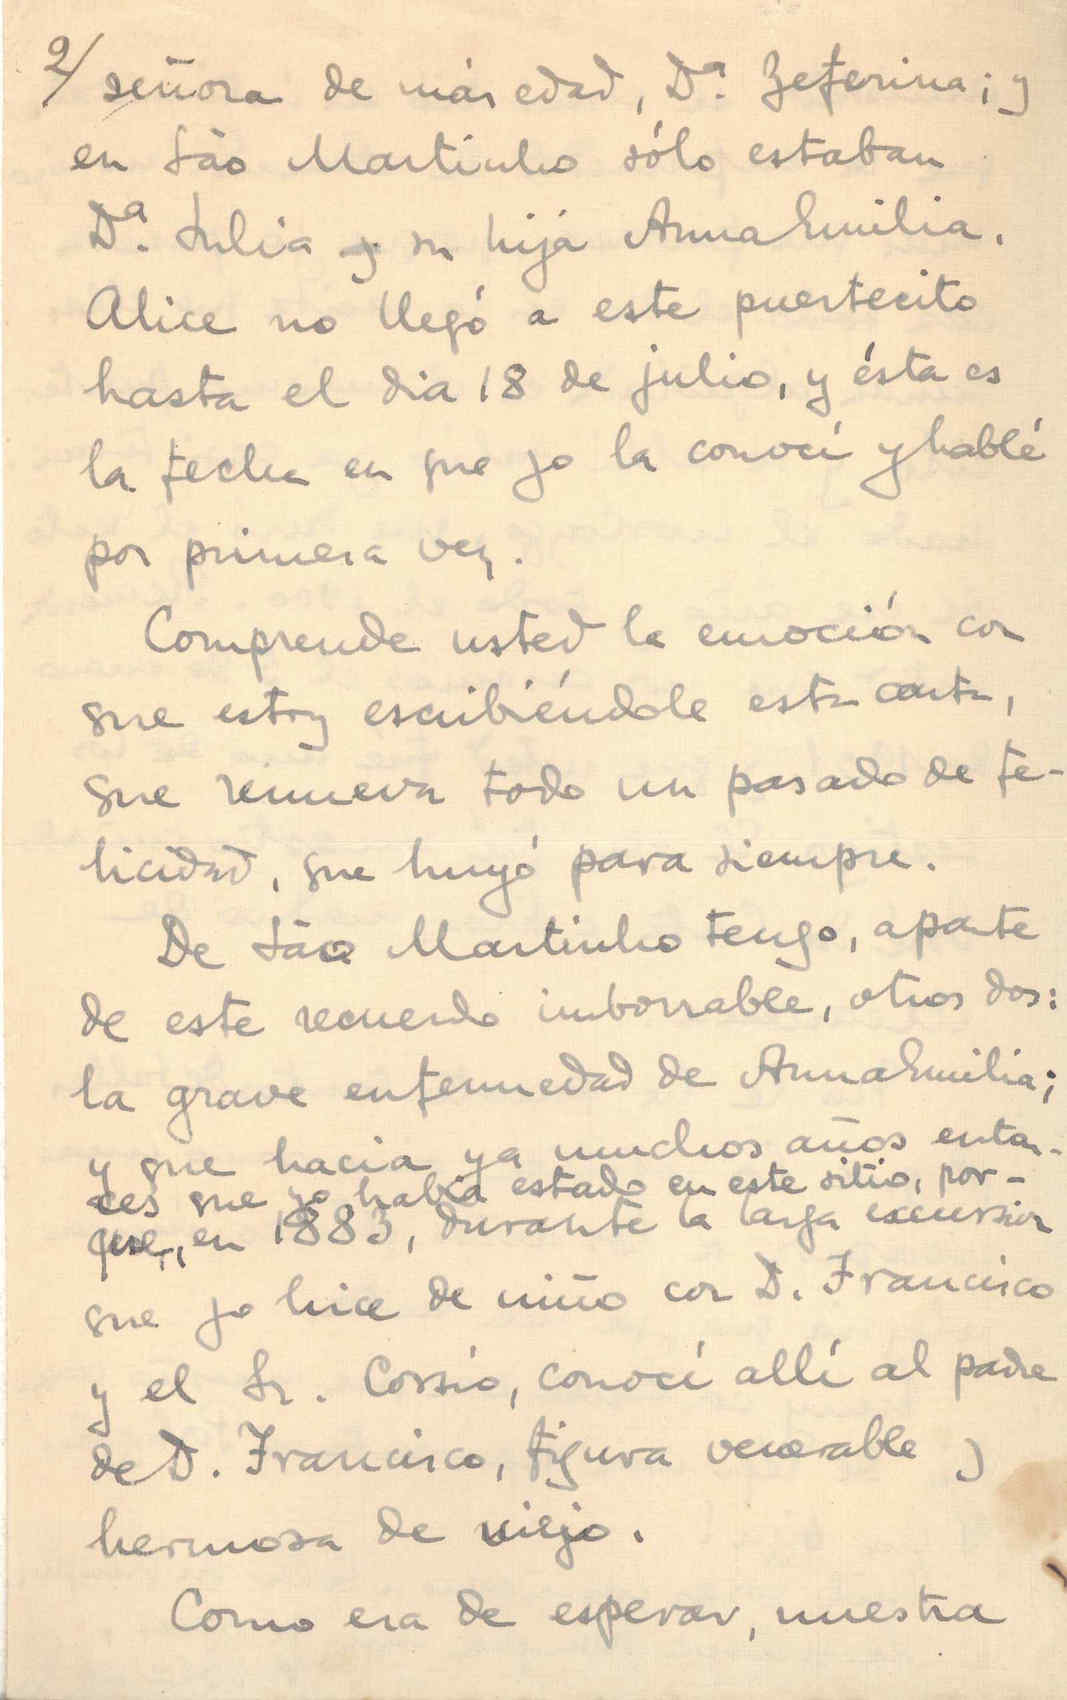 2/ señora de más edad, Dª. Zeferina; y
en São Martinho sólo estaban
Dª. Julia y su hija Anna Emilia.
Alice no llegó a este puertecito
hasta el dia 18 de julio, y ésta es
la fecha en que yo la conocí y hablé
por primera vez.
Comprende usted la emoción con
que estoy escribiéndole esta carta,
que renueva todo un pasado de fe-
licidad, que huyó para siempre.
De São Martinho tengo, aparte
de este recuerdo imborrable, otros dos:
la grave enfermedad de Anna Emilia;
y que hacia ya muchos años enton-
ces que yo había estado en este sitio, por-
que, en 1883, durante la larga excursión
que yo hice de niño con D. Francisco
y el Sr. Cossío, conocí allí al padre
de D. Francisco, figura venerable y
hermosa de viejo.
Como era de esperar, nuestra